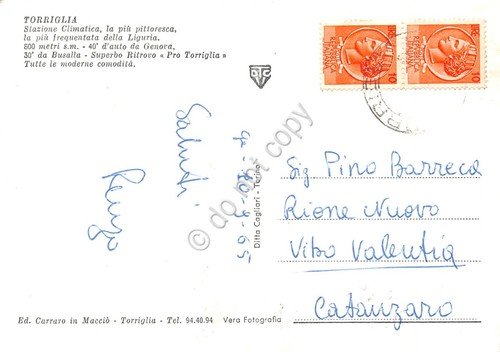 TORRIGLIA
Stazione Climatica, la più pittoresca,
la più frequentata della Liguria.
800 metri s.m. - 40' d'auto da Genova,
30' da Busalla - Superbo Ritrovo « Pro Torriglia »
Tutte le moderne comodità.
Saluti
Renzo
Ditta Cagliari - Torino
Sig Pino Barreca
Rione Nuovo
Vibo Valentia
Catanzaro
Ed. Carraro in Macciò - Torriglia - Tel. 94.40.94
Vera Fotografia
do not copy